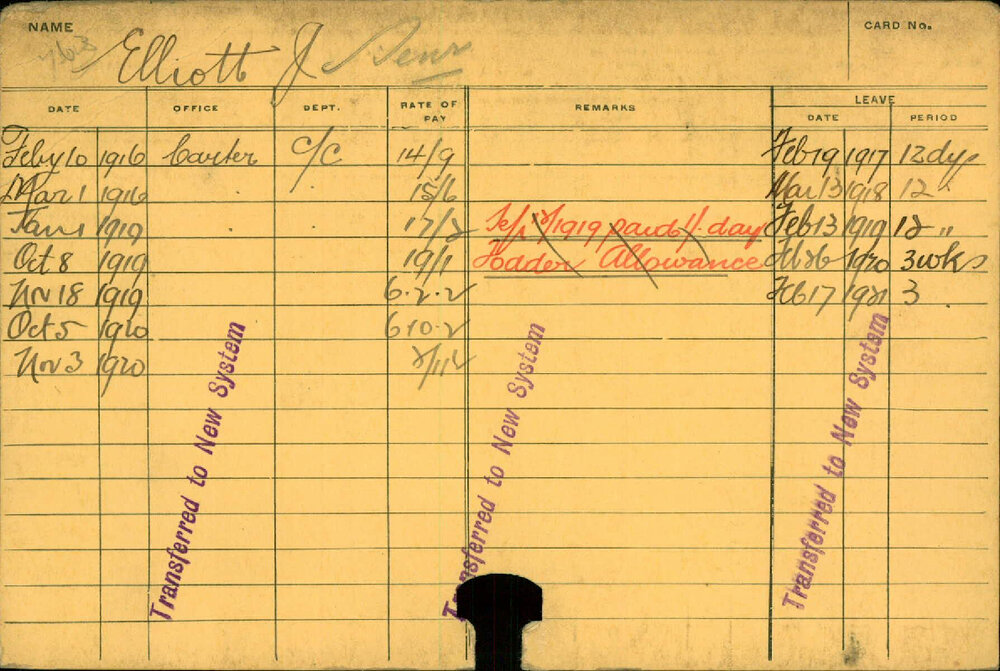 NAME
CARD No.
763 Elliott J Senr
DATE OFFICE DEPT. RATE OF PAY REMARKS LEAVE
DATE PERIOD
Feby 10 1916 Carter C/C 14/9 Feb 19 1917 12 dys
Mar 1 1916 15/6 Mar 13 1918 12 "
Jan 1 1919 17/2 1919 paid 1/- day Feb 13 1919 12 "
Oct 8 1919 19/1 Fodder Allowance Feb 26 1920 3 wks
Nov 18 1919 6.2.2 Feb 17 1921 3
Oct 5 1920 6.10.2
Nov 3 1920
Transferred to New System
Transferred to New System
Transferred to New System